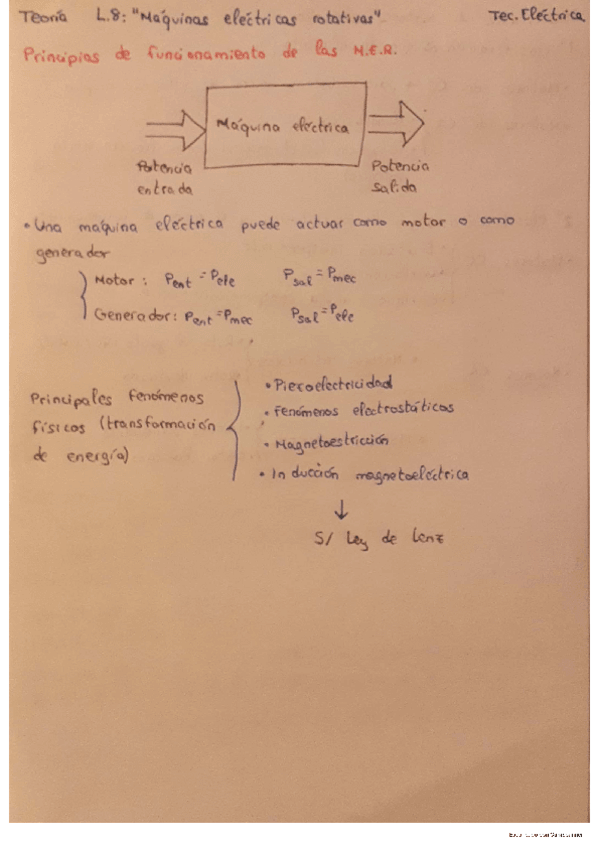 Teoría L.8: "Máquinas eléctricas rotativas" Tec. Eléctrica.
Principios de funcionamiento de las M.E.R.
Máquina eléctrica
Potencia entrada
Potencia salida
• Una máquina eléctrica puede actuar como motor o como
generador
Motor: Pent = Pele Psal = Pmec
Generador: Pent = Pmec Psal = Pele
Principales fenómenos
físicos (transformación
de energía)
• Piezoelectricidad
• Fenómenos electrostáticos
• Magnetoestricción
• Inducción magnetoeléctrica
↓
S/ Ley de Lenz